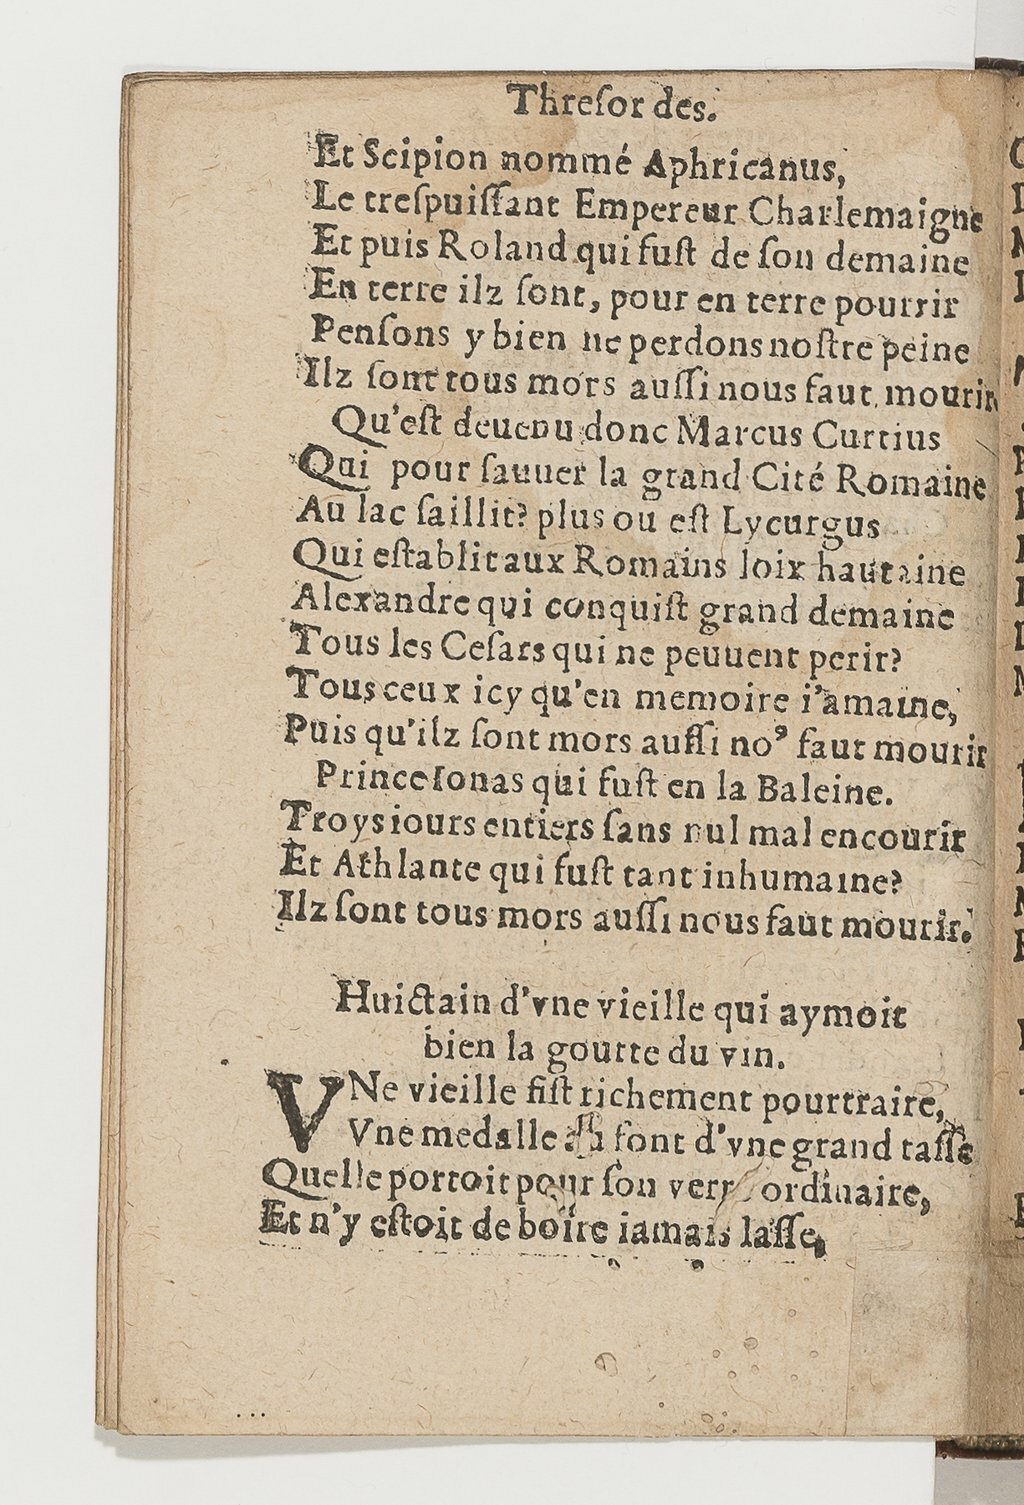 Threſor des.
Et Scipion nommé Aphricanus,
Le treſpuiſſant Empereur Charlemaigne
Et puis Roland qui fuſt de ſon demaine
En terre ilz ſont, pour en terre pourrir
Penſons y bien ne perdons noſtre peine
Ilz ſont tous mors auſſi nous faut mourir
Qu'eſt deuenu donc Marcus Curtius
Qui pour ſauuer la grand Cité Romaine
Au lac ſaillit? plus ou eſt Lycurgus
Qui eſtablit aux Romains loix hautaine
Alexandre qui conquiſt grand demaine
Tous les Ceſars qui ne peuuent perir?
Tous ceux icy qu'en memoire i'amaine,
Puis qu'ilz ſont mors auſſi noꝰ faut mourir
Prince Ionas qui fuſt en la Baleine.
Troys iours entiers ſans nul mal encourir
Et Athlante qui fuſt tant inhumaine?
Ilz ſont tous mors auſſi nous faut mourir.
Huictain d'vne vieille qui aymoit
bien la goutte du vin.
VNe vieille fiſt richement pourtraire,
Vne medalle au font d'vne grand taſſe
Quelle portoit pour ſon verre ordinaire,
Et n'y eſtoit de boire iamais laſſe,